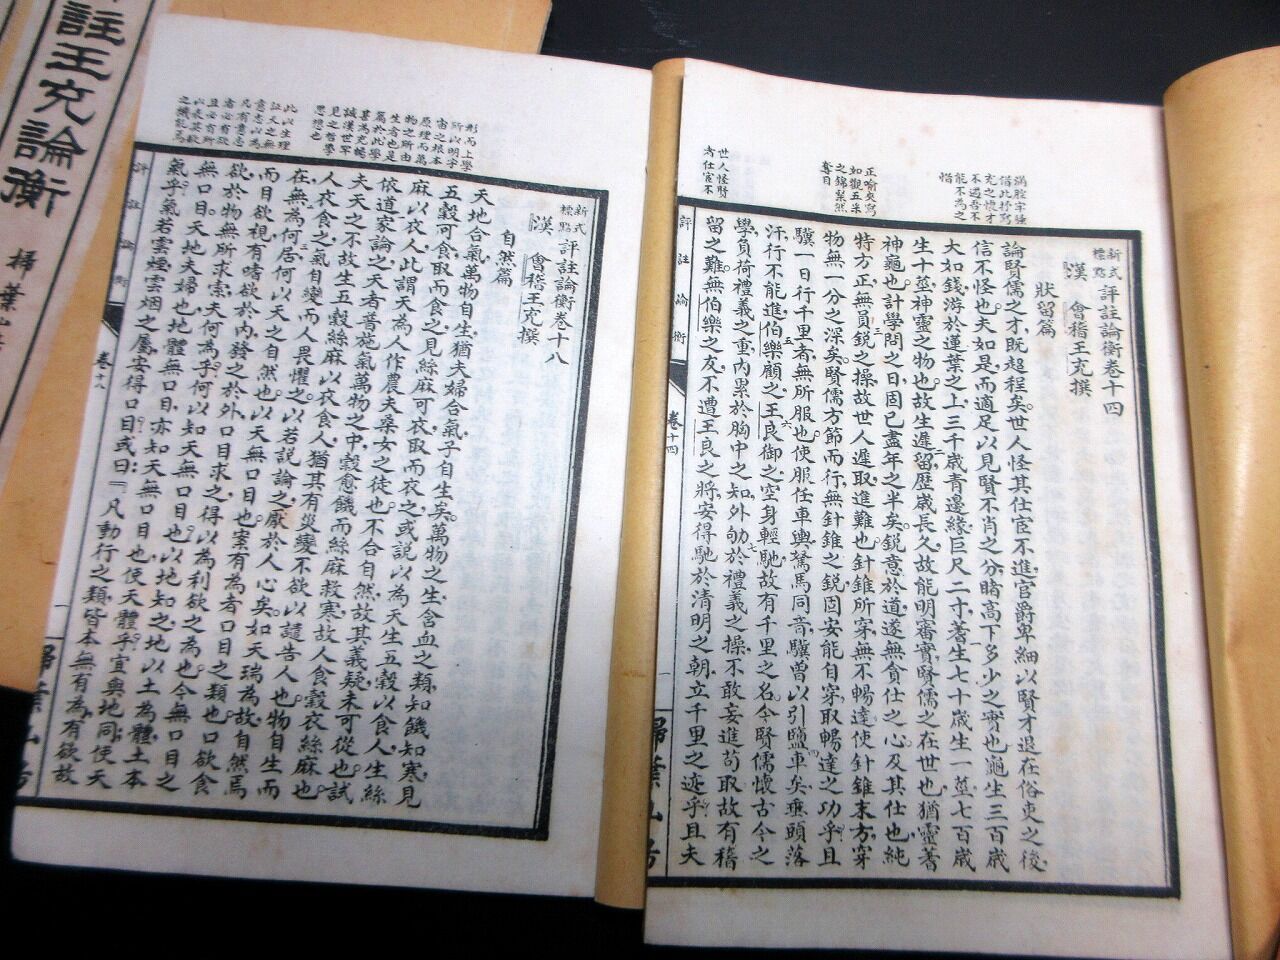 註王充論衡
掃葉山
新式標點 評註論衡卷十四
漢 會稽王充撰
狀留篇
論賢儒之才,既超程矣。世人怪其仕宦不進,官爵卑細。以賢才退在俗吏之後,
信不怪也。夫如是,而適足以見賢不肖之分,睹高下多少之實也。龜生三百歲
大如錢,游於蓮葉之上。三千歲青邊緣,巨尺二寸。蓍生七十歲生一莖,七百歲
生十莖。神靈之物也,故生遲留,歷歲長久,故能明審。實賢儒之在世也,猶靈蓍
神龜也。計學問之日,固已盡年之半矣。銳意於道,遂無貪仕之心。及其仕也,純
特方正,無員銳之操。故世人遲取進難也。針錐所穿,無不暢達。使針錐末方,穿
物無一分之深矣。賢儒方節而行,無針錐之銳,固安能自穿,取暢達之功乎。且
驥一日行千里者,無所服也。使服任車輿,駑馬同音。驥曾以引鹽車矣,垂頭落
汗,行不能進。伯樂顧之,王良御之,空身輕馳,故有千里之名。今賢儒懷古今之
學,負荷禮義之重,內累於胸中之知,外劬於禮義之操,不敢妄進苟取,故有稽
留之難。無伯樂之友,不遭王良之將,安得馳於清明之朝,立千里之迹乎。且夫
世人怪賢者仕宦不
評註論衡
卷十四
一
掃葉山房
新式標點 評註論衡卷十八
漢 會稽王充撰
自然篇
天地合氣,萬物自生,猶夫婦合氣,子自生矣。萬物之生,含血之類,知饑知寒。見
五穀可食,取而食之,見絲麻可衣,取而衣之。或說以為天生五穀以食人,生絲
麻以衣人,此謂天為人作農夫桑女之徒也。不合自然,故其義疑,未可從也。試
依道家論之。天者,普施氣萬物之中,穀愈饑而絲麻救寒,故人食穀衣絲麻也。
夫天之不故生五穀絲麻以衣食人,猶其有災變不欲以譴告人也。物自生,而
人衣食之,氣自變,而人畏懼之。以若說論之,厭於人心矣。如天瑞為故,自然焉
在,無為何居。何以天之自然也。以天無口目也。案有為者,口目之類也。口欲食
而目欲視,有嗜欲於內,發之於外,口目求之,得以為利,欲之為也。今無口目之
欲,於物無所求索,夫何為乎。何以知天無口目也。以地知之。地以土為體,土本
無口目。天地,夫婦也,地體無口目,亦知天無口目也。使天體乎,宜與地同,使天
氣乎,氣若雲煙,雲烟之屬,安得口目。或曰:「凡動行之類,皆本無有為。有欲故
形而上學所以明宇宙之根本原理而萬物之所由生者也是屬於此學甚為充暢誠漢世罕見之哲學思想也
評註論衡
卷十八
一
掃葉山房